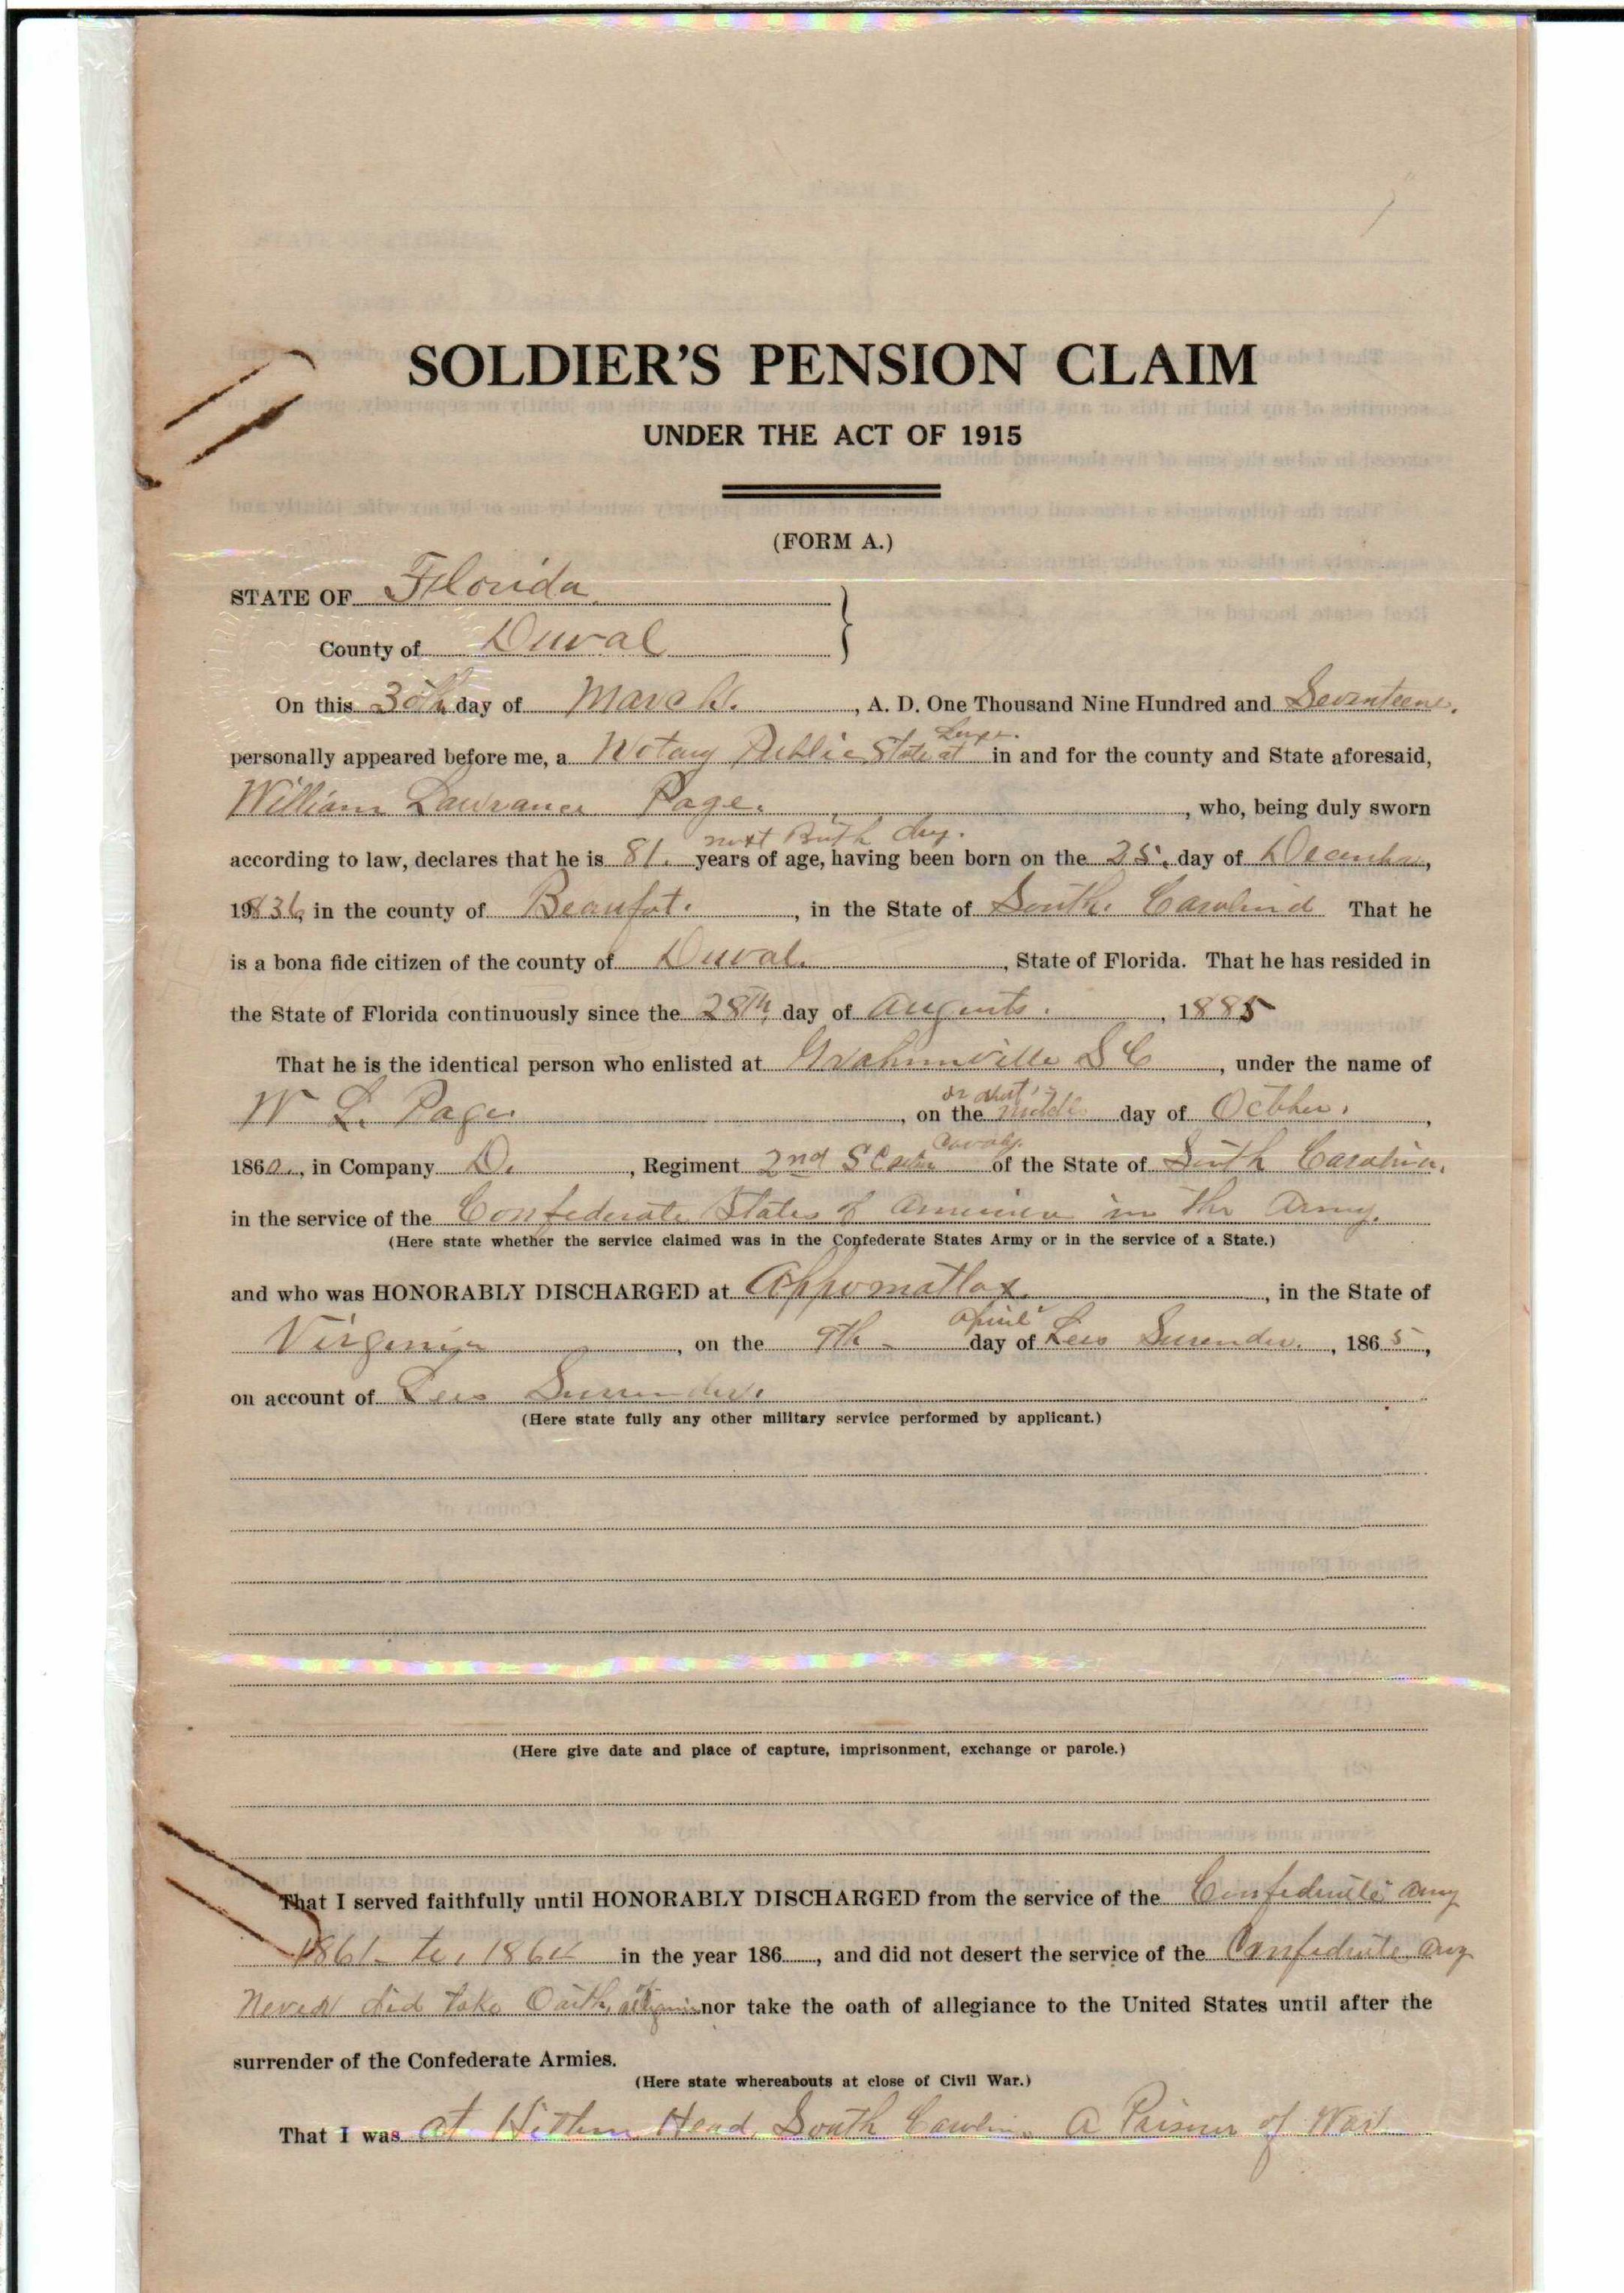 SOLDIER'S PENSION CLAIM
UNDER THE ACT OF 1915
(FORM A.)
STATE OF Florida
County of Duval
On this 30th day of March. , A. D. One Thousand Nine Hundred and Seventeene.
Large.
personally appeared before me, a Notary Public State at in and for the county and State aforesaid,
William Lawrance Page. , who, being duly sworn
next Birth day.
according to law, declares that he is 81. years of age, having been born on the 25. day of December,
1836, in the county of Beaufot. , in the State of South. Carolina That he
is a bona fide citizen of the county of Duval. , State of Florida. That he has resided in
the State of Florida continuously since the 28th day of Augusts. , 1885
That he is the identical person who enlisted at Grahamville S C , under the name of
or about
W L. Page. , on the middle day of Octber. ,
Cavaly.
186 , in Company D. , Regiment 2nd S of the State of South Carolina.
in the service of the Confederate States of America in the Army.
(Here state whether the service claimed was in the Confederate States Army or in the service of a State.)
and who was HONORABLY DISCHARGED at Appomattox , in the State of
April
Virginia , on the 9th day of Lees Surender. , 1865,
on account of Lees Surrender.
(Here state fully any other military service performed by applicant.)
(Here give date and place of capture, imprisonment, exchange or parole.)
That I served faithfully until HONORABLY DISCHARGED from the service of the Confederate Army
1861 to, in the year 186 , and did not desert the service of the Confederate Army
Never did take Oath, nor take the oath of allegiance to the United States until after the
surrender of the Confederate Armies.
(Here state whereabouts at close of Civil War.)
That I was at Head, South Carolina A Prisner of War.